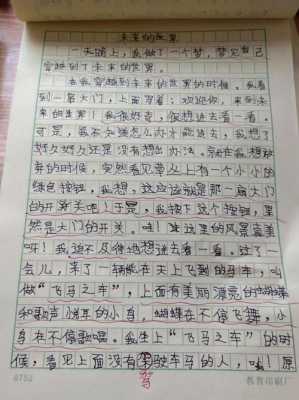 未来的世界
一天晚上，我做了一个梦，梦见自己
穿越到了未来的世界。
当我穿越到未来的世界的时候，我看
到一扇大门，上面写着：欢迎你，来到未
来的世界！我很好奇，很想进去看一看。
可是，我不知道怎么办才能进去，我想了
好久好久还是没有想出办法。在我想放
弃的时候，突然看见草丛上有一个小小的
绿色按钮，我想，这应该就是那一扇大门
的开关吧！于是，我按下这个按钮，果
然是大门的开关。哇！这里的风景真美
呀！我迫不及待地想进去看一看。过了一
会儿，来了一辆能在天上飞到的马车，叫
做“飞马之车”，上面有美丽漂亮的蝴蝶
和歌声悦耳的小鸟，蝴蝶在不停飞舞，小
鸟在不停歌唱。我坐上“飞马之车”的时
候，看见上面没有驾驶马车的人，哦！原
驾
8752
教育印刷厂